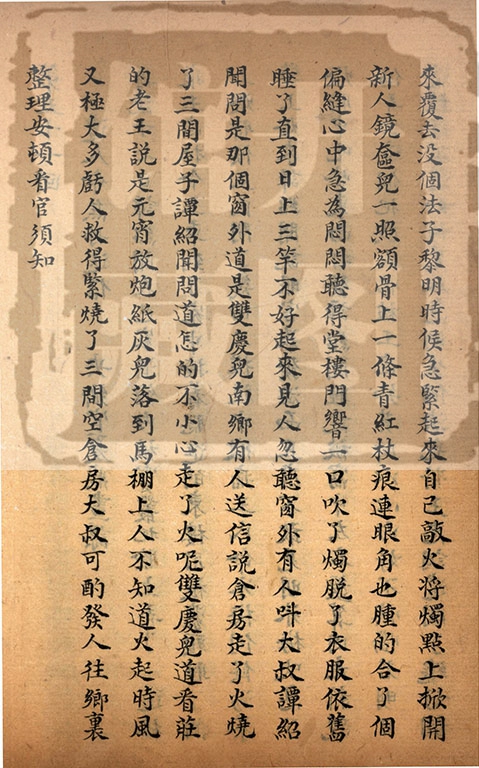 來覆去没個法子黎明時候急緊起來自己敲火将燭點上掀開
新人鏡奩兒一照額骨上一條青紅杖痕連眼角也腫的合了個
偏縫心中急為悶悶聽得堂樓門響一口吹了燭脱了衣服依舊
睡了直到日上三竿不好起來見人忽聽窗外有人呌大叔譚紹
聞問是那個窗外道是雙慶兒南鄉有人送信説倉房走了火燒
了三間屋子譚紹聞問道怎的不小心走了火呢雙慶兒道看莊
的老王説是元宵放炮紙灰兒落到馬棚上人不知道火起時風
又極大多虧人救得緊燒了三間空倉房大叔可酌發人往鄉裏
整理安頓看官須知